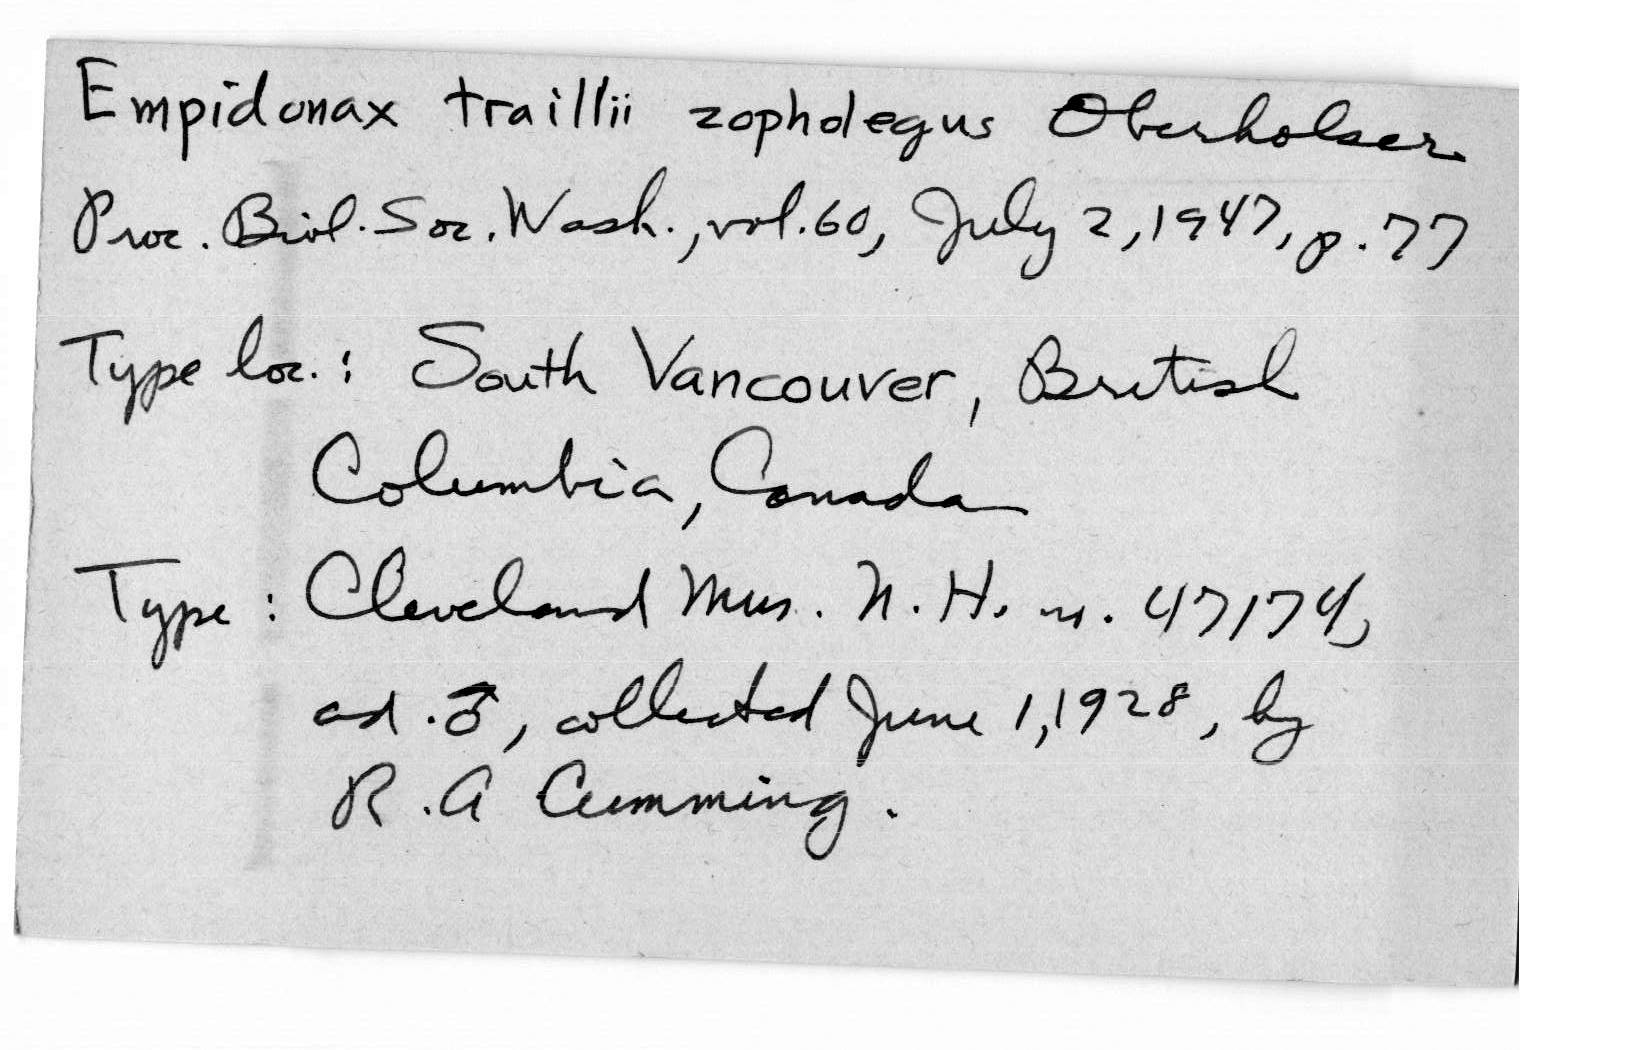 Empidonax traillii zopholegus Oberholser
Proc. Biol. Soc. Wash., vol. 60, July 2, 1947, p. 77
Type loc. : South Vancouver, British
Columbia, Canada
Type : Cleveland Mus. N. H. no. 47174,
ad. ♂, collected June 1, 1928, by
R. A Cumming.